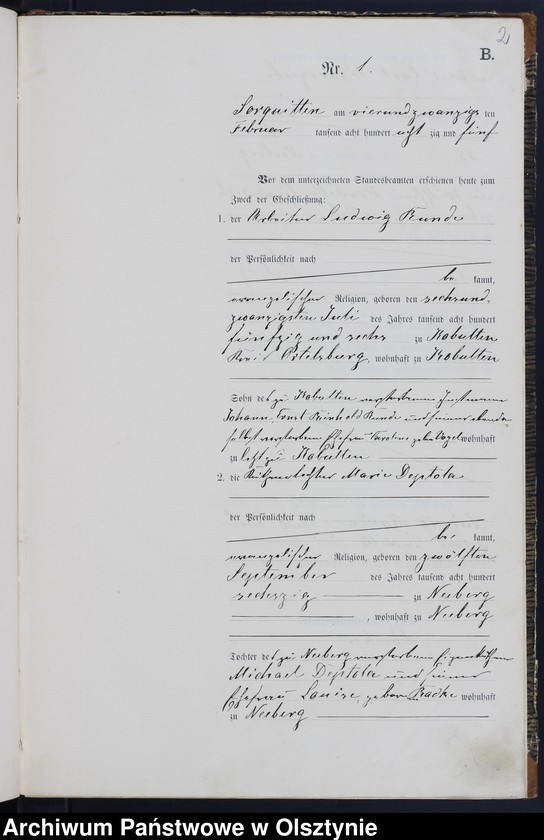 2
B.
Nr. 1.
Sorquitten am vierundzwanzigs ten
Februar tausend acht hundert acht zig und fünf
Vor dem unterzeichneten Standesbeamten erschienen heute zum
Zweck der Eheschließung:
1. der Arbeiter Ludwig Kunde
der Persönlichkeit nach
be kannt,
evangelischer Religion, geboren den sechsund
zwanzigsten Juli des Jahres tausend acht hundert
fünfzig und sechs zu Kobulten
Kreis Ortelsburg, wohnhaft zu Kobulten
Sohn des zu Kobulten verstorbenen Instmann
Johann Ernst Reinhold Kunde und seiner ebenda
selbst verstorbenen Ehefrau Karoline geb. Vogel wohnhaft
zu letzt zu Kobulten
2. die Käthnertochter Marie Deptola
der Persönlichkeit nach
be kannt,
evangelischer Religion, geboren den zwölften
September des Jahres tausend acht hundert
sechszig zu Neeberg
, wohnhaft zu Neeberg
Tochter des zu Neeberg verstorbenen Eigenkäthners
Michael Deptola und seiner
Ehefrau Louise, geborenen Radke wohnhaft
zu Neeberg
Archiwum Państwowe w Olsztynie